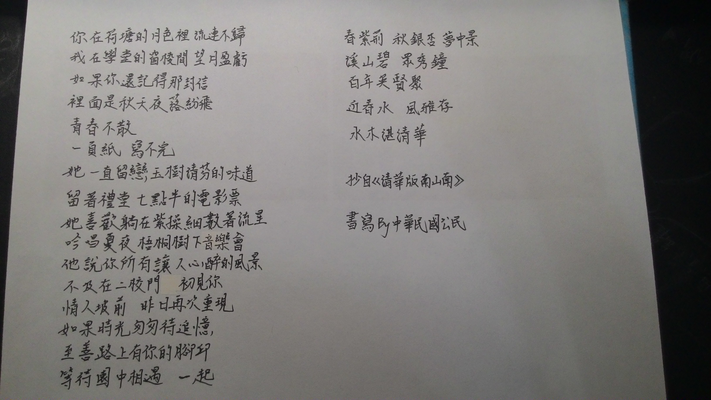 你在荷塘的月色裡 流連不歸
我在學堂的窗楼間 望月盈虧
如果你還記得那封信
裡面是秋天夜落紛飛
青春不散
一頁紙 寫不完
她一直留戀,玉樹清芬的味道
留著禮堂 七點半的電影票
她喜歡躺在紫操細數著流星
吟唱夏夜梧桐樹下音樂會
他說你所有讓人心醉的風景
不及在二校門 初見你
情人坡前 昨日再次重現
如果時光匆匆待追憶,
至善路上有你的腳印
等待園中相遇 一起
春紫荊 秋銀杏 夢中景
溪山碧 眾秀鐘
百年英賢聚
近春水 風雅存
水木湛清華
抄自《清華版南山南》
書寫By中華民國公民